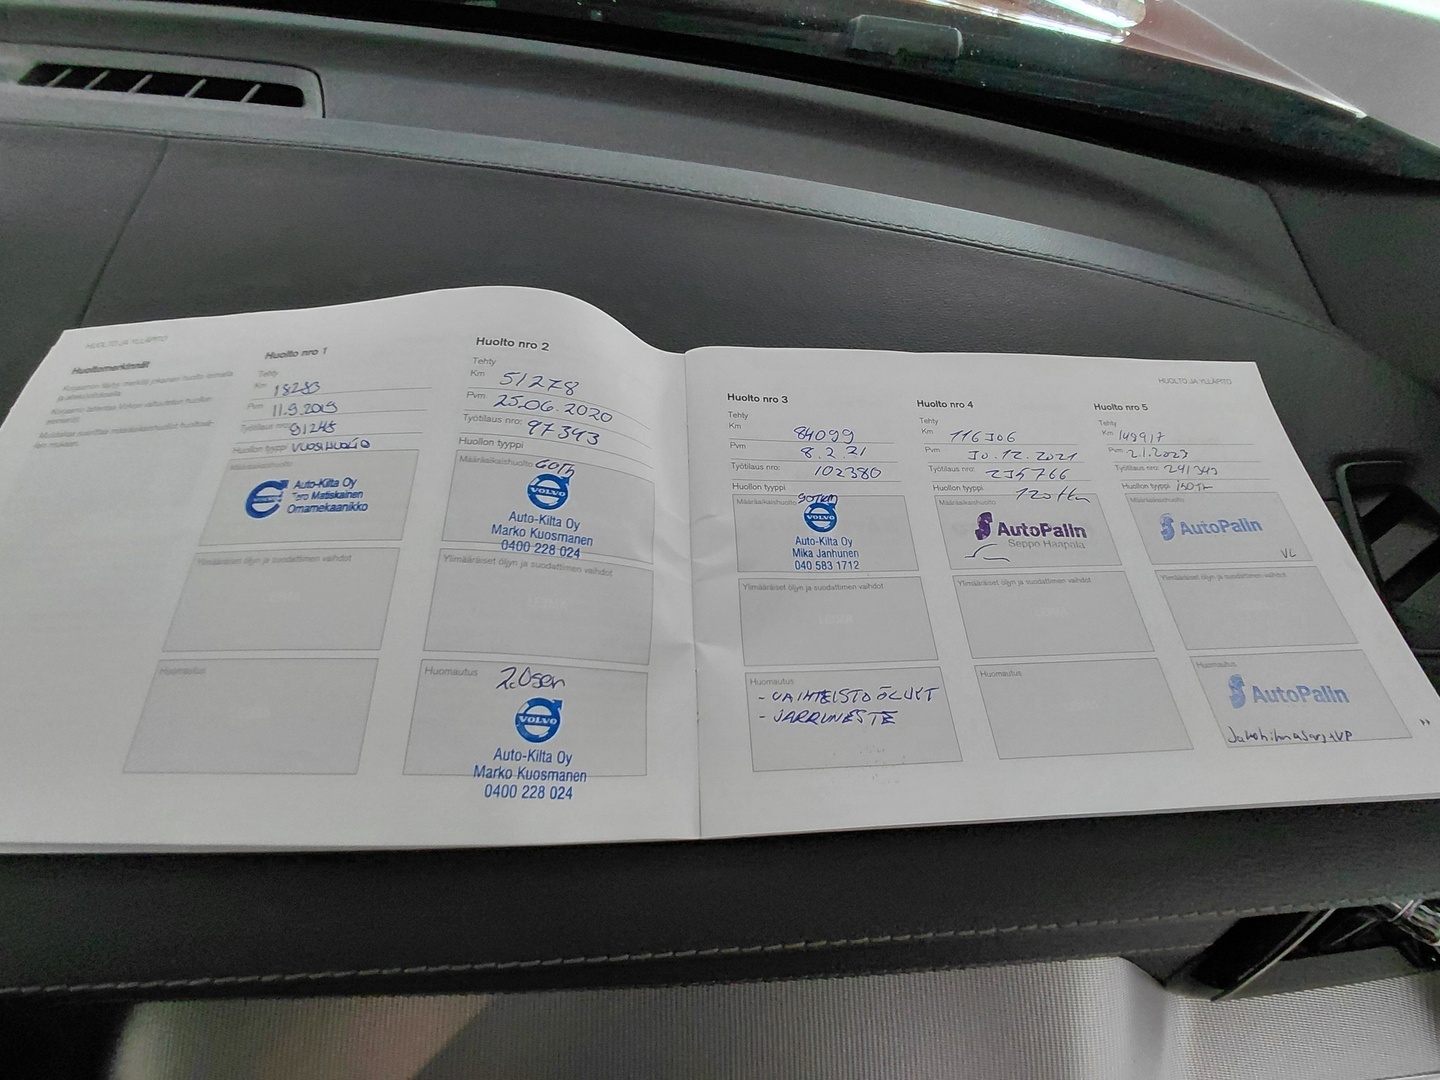 HUOLTO JA YLLÄPITO
Huoltomerkinnät
Huolto nro 1
Tehty
Km 18283
Pvm 11.9.2019
Työtilaus nro: 91245
Huollon tyyppi VUOSIHUOLTO
Määräaikaishuolto
Auto-Kilta Oy
Tero Matiskainen
Omamekaanikko
Ylimääräiset öljyn ja suodattimen vaihdot
Huomautus
Huolto nro 2
Tehty
Km 51278
Pvm 25.06.2020
Työtilaus nro: 97343
Huollon tyyppi
Määräaikaishuolto 60Th
VOLVO
Auto-Kilta Oy
Marko Kuosmanen
0400 228 024
Ylimääräiset öljyn ja suodattimen vaihdot
Huomautus
VOLVO
Auto-Kilta Oy
Marko Kuosmanen
0400 228 024
HUOLTO JA YLLÄPITO
Huolto nro 3
Tehty
Km 84099
Pvm 8.2.21
Työtilaus nro: 102380
Huollon tyyppi
Määräaikaishuolto 90Tkm
VOLVO
Auto-Kilta Oy
Mika Janhunen
040 583 1712
Ylimääräiset öljyn ja suodattimen vaihdot
Huomautus
- VAIHTEISTOÖLJYT
- JARRUNESTE
Huolto nro 4
Tehty
Km 116306
Pvm 30.12.2021
Työtilaus nro: 235766
Huollon tyyppi 120tkm
Määräaikaishuolto
AutoPalin
Seppo Haapala
Ylimääräiset öljyn ja suodattimen vaihdot
Huomautus
Huolto nro 5
Tehty
Km 149917
Pvm 2.1.2023
Työtilaus nro: 241343
Huollon tyyppi 150Tk
Määräaikaishuolto
AutoPalin
VL
Ylimääräiset öljyn ja suodattimen vaihdot
Huomautus
AutoPalin